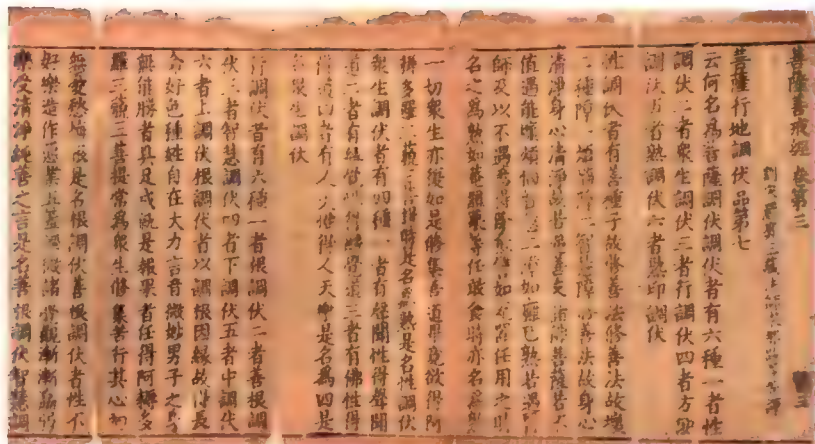 菩薩善戒經卷第三
菩薩行地調伏品第七
云何名為菩薩調伏調伏者有六種一者性
調伏二者眾生調伏三者行調伏四者方便
調伏五者熟調伏六者熟印調伏
性調伏者有善種子故修善法修善法故壞
二種障一煩惱障二智慧障修善法故身心
清淨身心清淨故若遇善友諸佛菩薩若不
值遇能壞煩惱
師及以不遇
名之為熟如菴羅菓等任敢食時亦名為熟
一切眾生亦復如是修集善道畢竟欲得阿
耨多羅三藐三菩提時是名為熟是名性調伏
眾生調伏者有四種一者有聲聞性得聲聞
道二者有緣覺性得緣覺道三者有佛性得
佛道四者有人天性得人天樂是名為四是
名眾生調伏
行調伏者有六種一者根調伏二者善根調
伏三者智慧調伏四者下調伏五者中調伏
六者上調伏根調伏者以調根因緣故得長
命好色種姓自在大力言音微妙男子之身
無能勝者具足成就是報果者任得阿耨多
羅三藐三菩提常為眾生修集善行其心初
無憂愁悔 是名根調伏善根調伏者性不
好樂造作惡業五蓋微諸惡覺觀漸漸羸弱
樂受清淨純善之言是名善根調伏智慧調